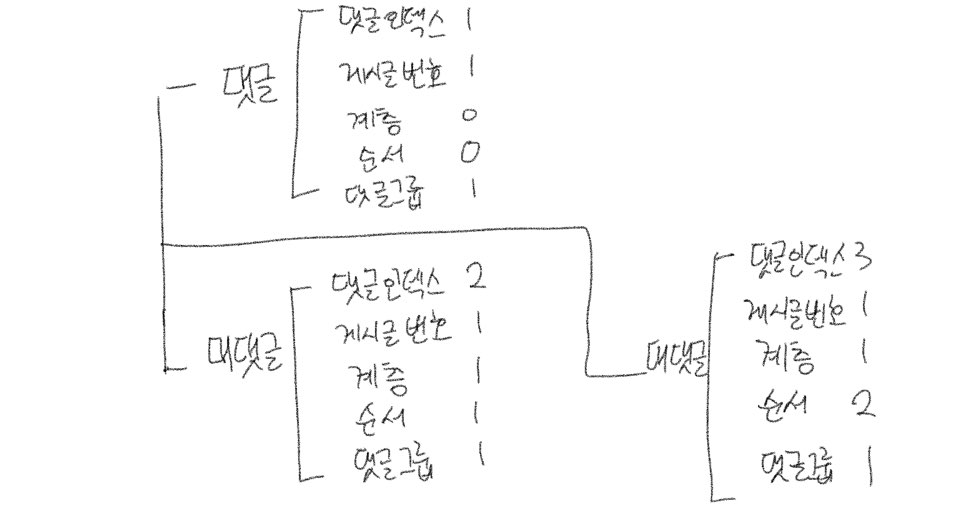 댓글
댓글인덱스 1
게시글번호 1
계층 0
순서 0
댓글그룹 1
대댓글
댓글인덱스 2
게시글번호 1
계층 1
순서 1
댓글그룹 1
대댓글
댓글인덱스 3
게시글번호 1
계층 1
순서 2
댓글그룹 1